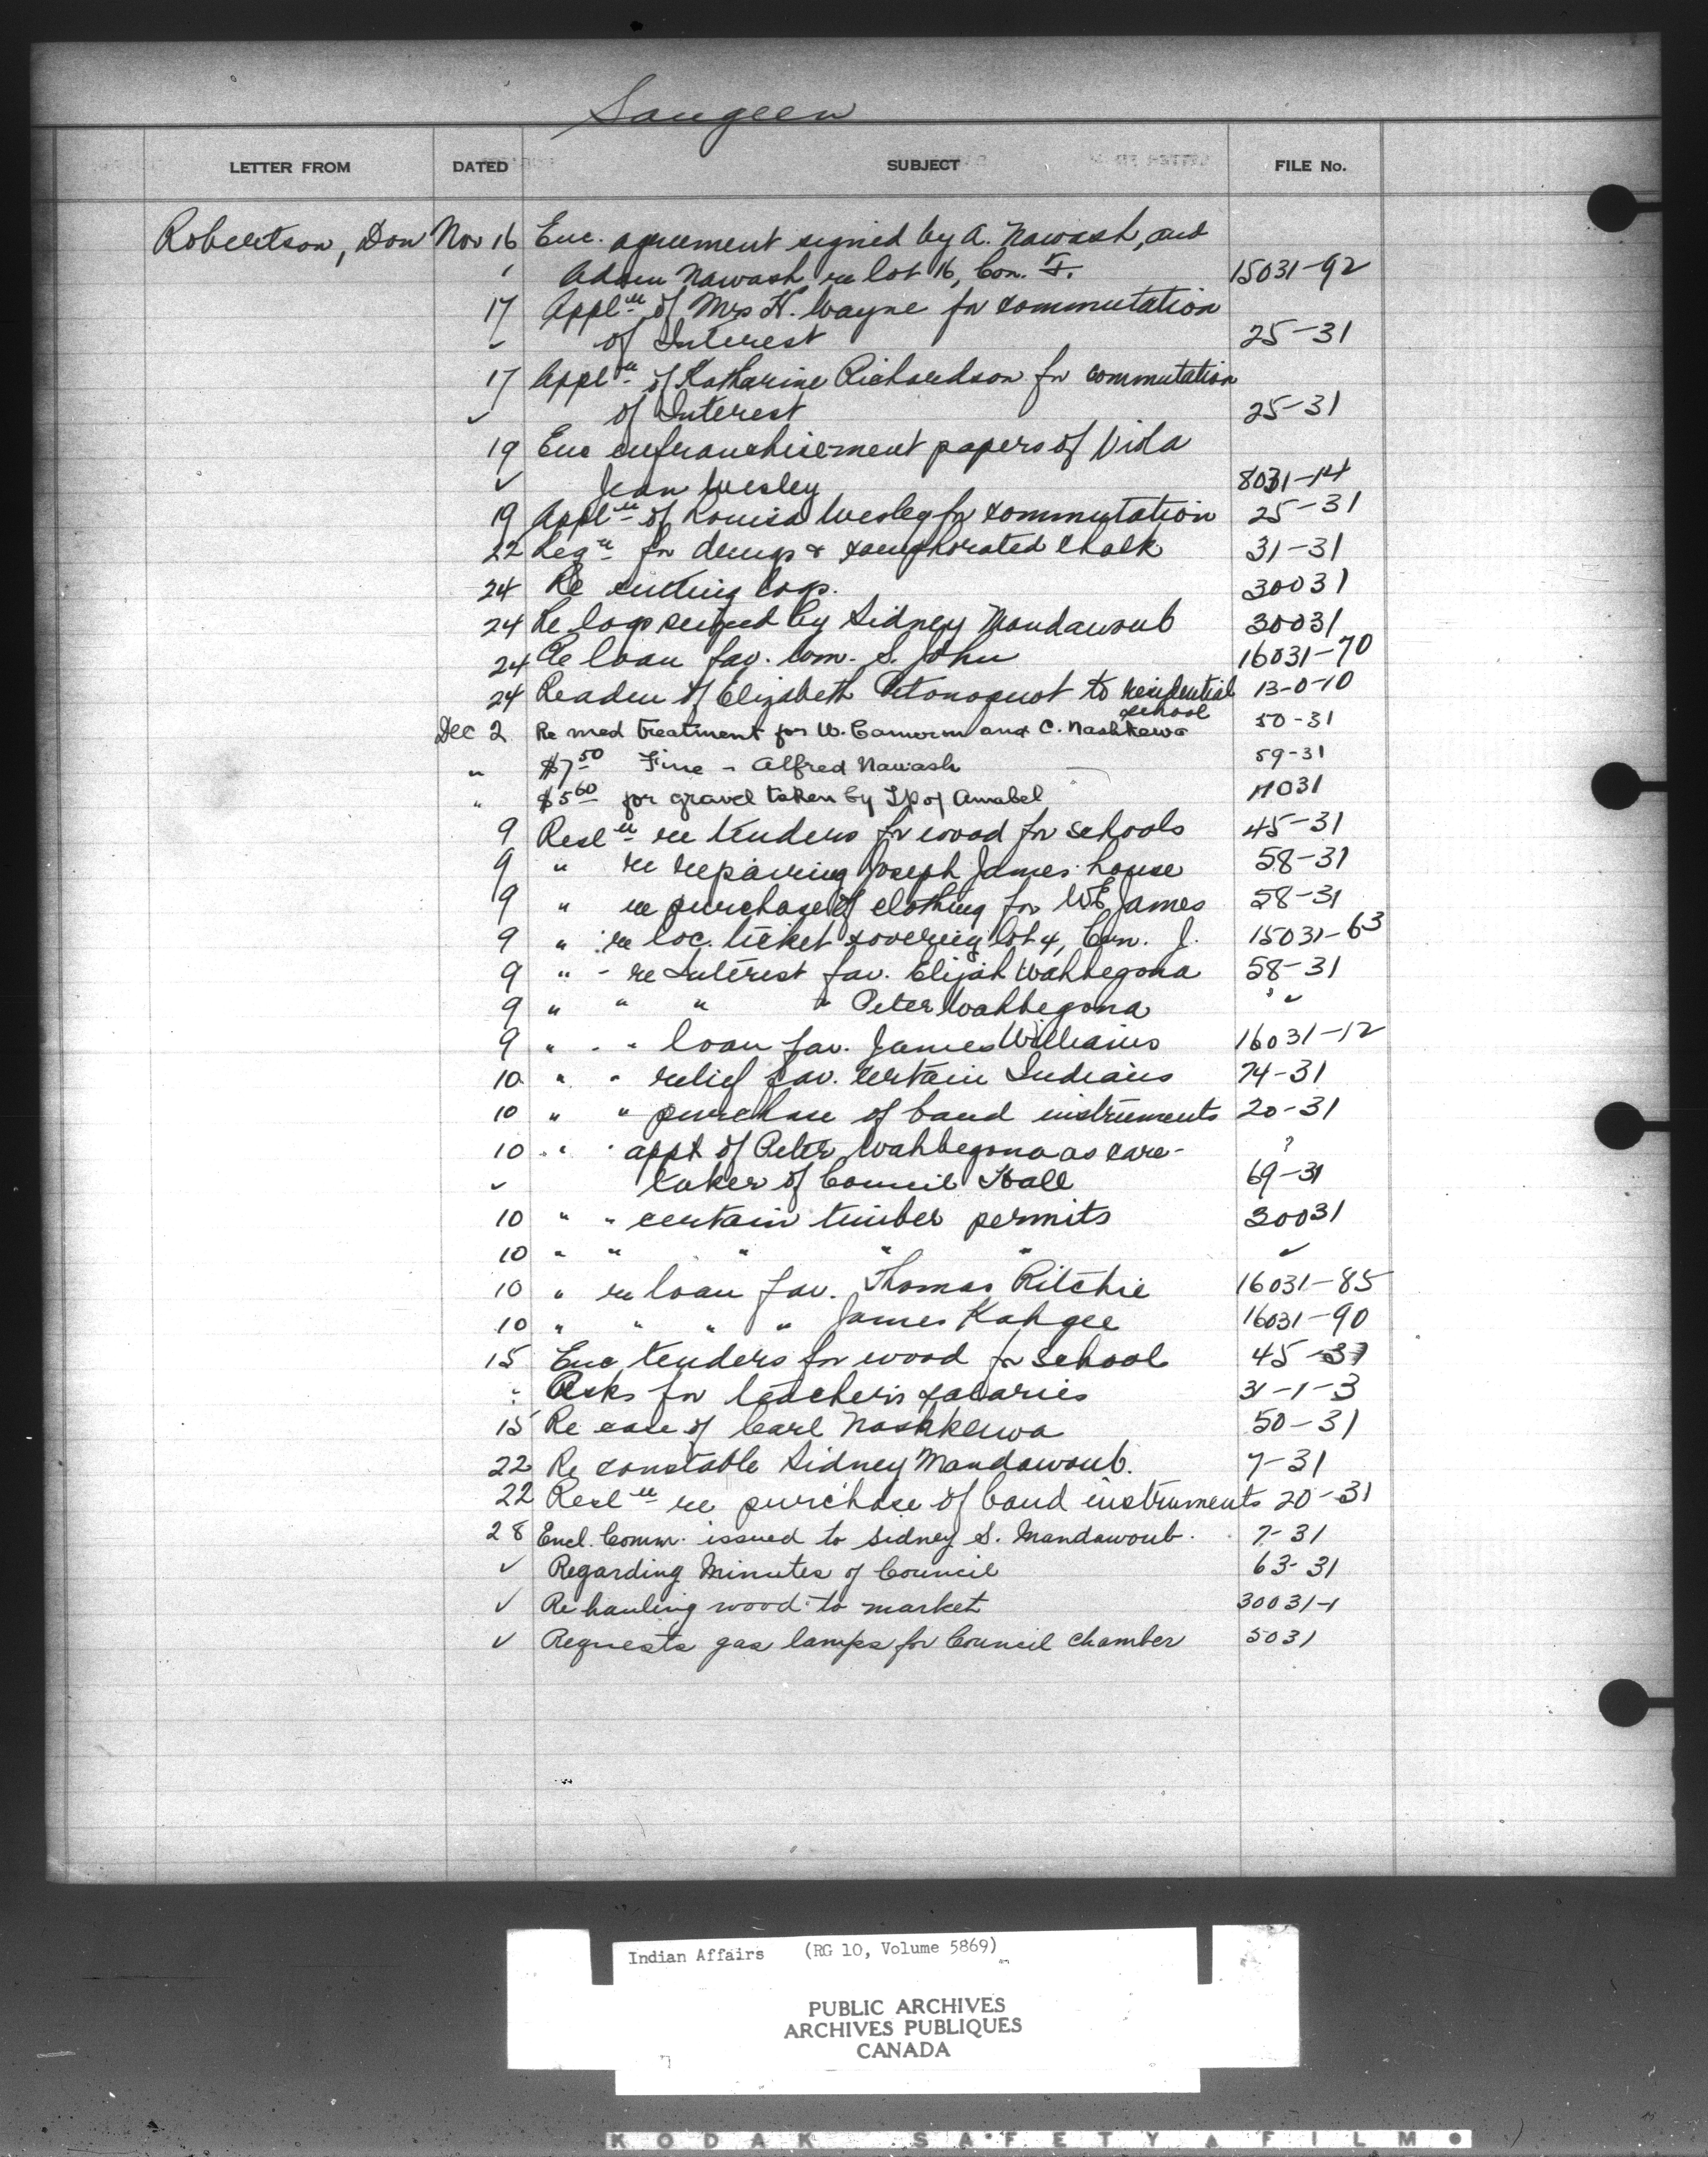 Saugeen
LETTER FROM DATED SUBJECT FILE No.
Robertson, Don Nov 16 Enc. agreement signed by A. Nawash, and
Adam Nawash re lot 16, Con. 15031-92
17 Appl'n of Mrs H. Wayne for commutation
✓ of Interest 25-31
17 Appl'n of Katharine Richardson for commutation
✓ of Interest 25-31
19 Enc enfranchisement papers of Vida
✓ Jean Wesley 8031-14
19 Appl'n of Louisa Wesley for commutation 25-31
22 Req'n for drugs & camphorated chalk 31-31
24 Re cutting logs. 30031
24 Re logs seized by Sidney Mandawoub 30031
24 Re loan fav. Wm. S. John 16031-70
24 Re adm of Elizabeth to residential 13-0-10
school
Dec 2 Re med treatment for W. Cameron and C. Nashkewa 50-31
" $7.50 Fine - Alfred Nawash 59-31
" $5.60 for gravel taken by Tp of Amabel 17031
9 Resl'n re tenders for wood for schools 45-31
9 " re repairing Joseph James house 58-31
9 " re purchase of clothing for W E James 58-31
9 " re loc. ticket covering lot 4, Con. J. 15031-63
9 " - re Interest fav. Elijah Wahbegona 58-31
9 " " " " Peter Wahbegona " ✓
9 " - " loan fav. James Williams 16031-12
10 " " relief fav. certain Indians 74-31
10 " " purchase of band instruments 20-31
10 " " appt of Peter Wahbegona as care- ?
✓ taker of Council Hall 69-31
10 " " certain timber permits 30031
10 " " " " " ✓
10 " re loan fav. Thomas Ritchie 16031-85
10 " " " " James Kahgee 16031-90
15 Enc tenders for wood for school 45-31
" Asks for teacher's salaries 31-1-3
15 Re case of Carl Nashkewa 50-31
22 Re constable Sidney Mandawoub. 7-31
22 Resl'n re purchase of band instruments 20-31
28 Encl. Comm. issued to Sidney S. Mandawoub. 7-31
✓ Regarding Minutes of Council 63-31
✓ Re hauling wood to market 30031-1
✓ Requests gas lamps for Council Chamber 5031
Indian Affairs (RG 10, Volume 5869)
PUBLIC ARCHIVES
ARCHIVES PUBLIQUES
CANADA
KODAK SAFETY FILM